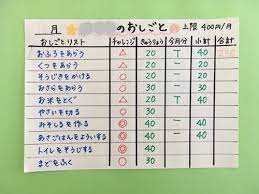 月 のおしごと 上限 400円/月
おしごとリスト チャレンジ きゅうりょう 今月分 小計 合計
おふろをあらう △ 20 T 40
くつをあらう △ 20
そうじきをかける ○ 30
おさらをあらう ○ 30
お米をとぐ △ 20 T 40
やさいを切る ○ 30
みそしるを作る ◎ 40 一 40
あさごはんをよういする ◎ 40 一 40
トイレをそうじする ◎ 40
まどをふく ○ 30